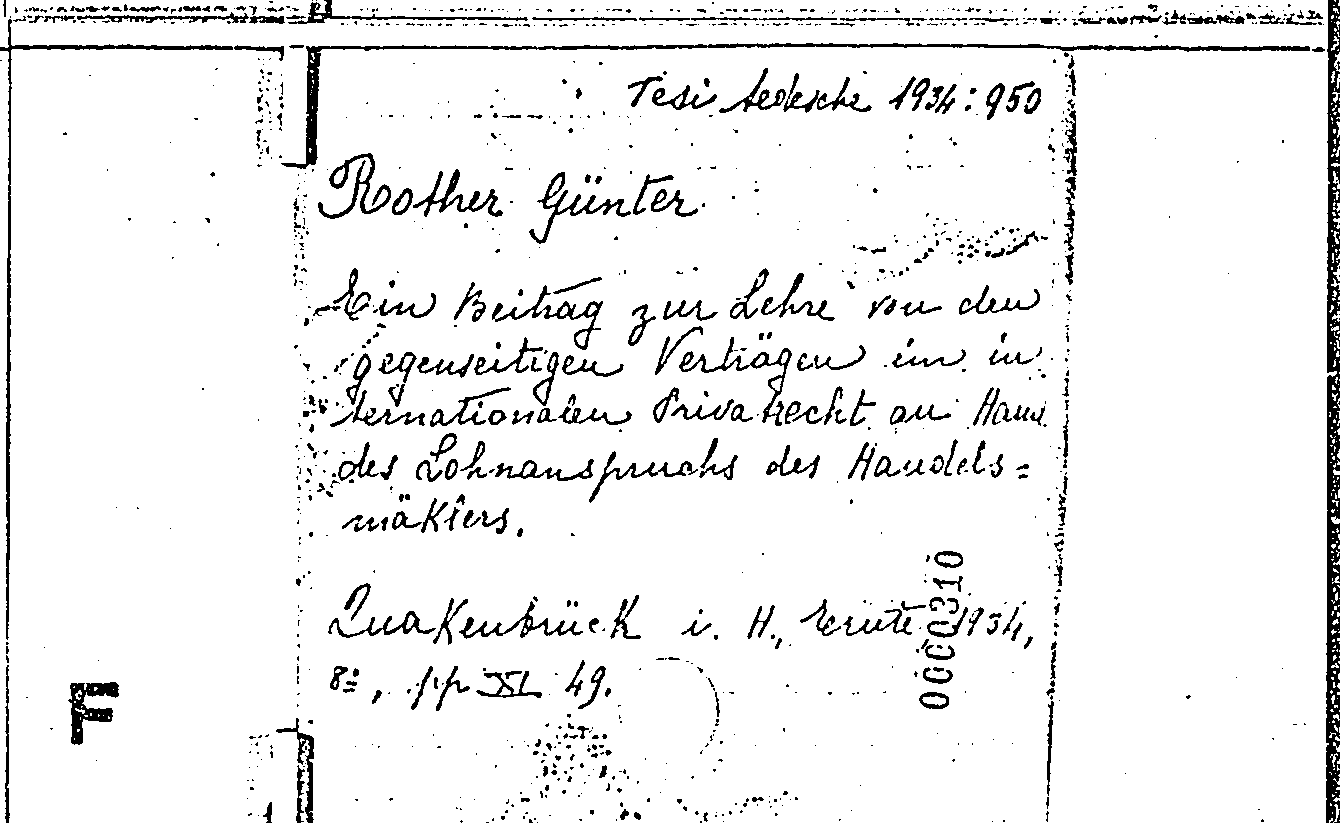 Tesi tedesche 1934: 950
Rother Günter
Ein Beitrag zur Lehre von den
gegenseitigen Verträgen im in
ternationalen Privatrecht an Hand
des Lohnanspruchs des Handels=
mäklers.
Quakenbrück i. H., Trute 1934,
8º, pp XI 49.
0000310
F